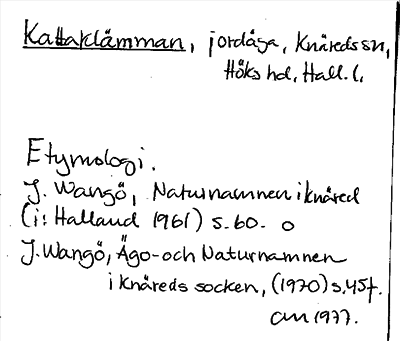 Kattaklämman, jordäga, Knäreds sn,
Höks hd, Hall. l.
Etymologi.
J. Wangö, Naturnamnen i Knäred
(i: Halland 1961) s. 60. o
J. Wangö, Ägo- och Naturnamnen
i Knäreds socken, (1970) s. 45f.
1977.